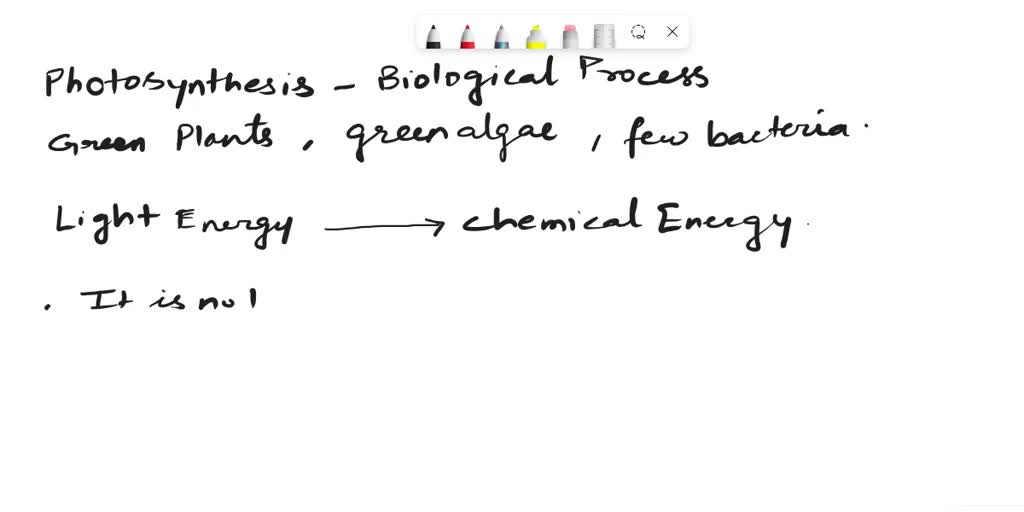 Photosynthesis - Biological Process
Green Plants, green algae, few bacteria.
Light Energy → chemical Energy.
. It is no